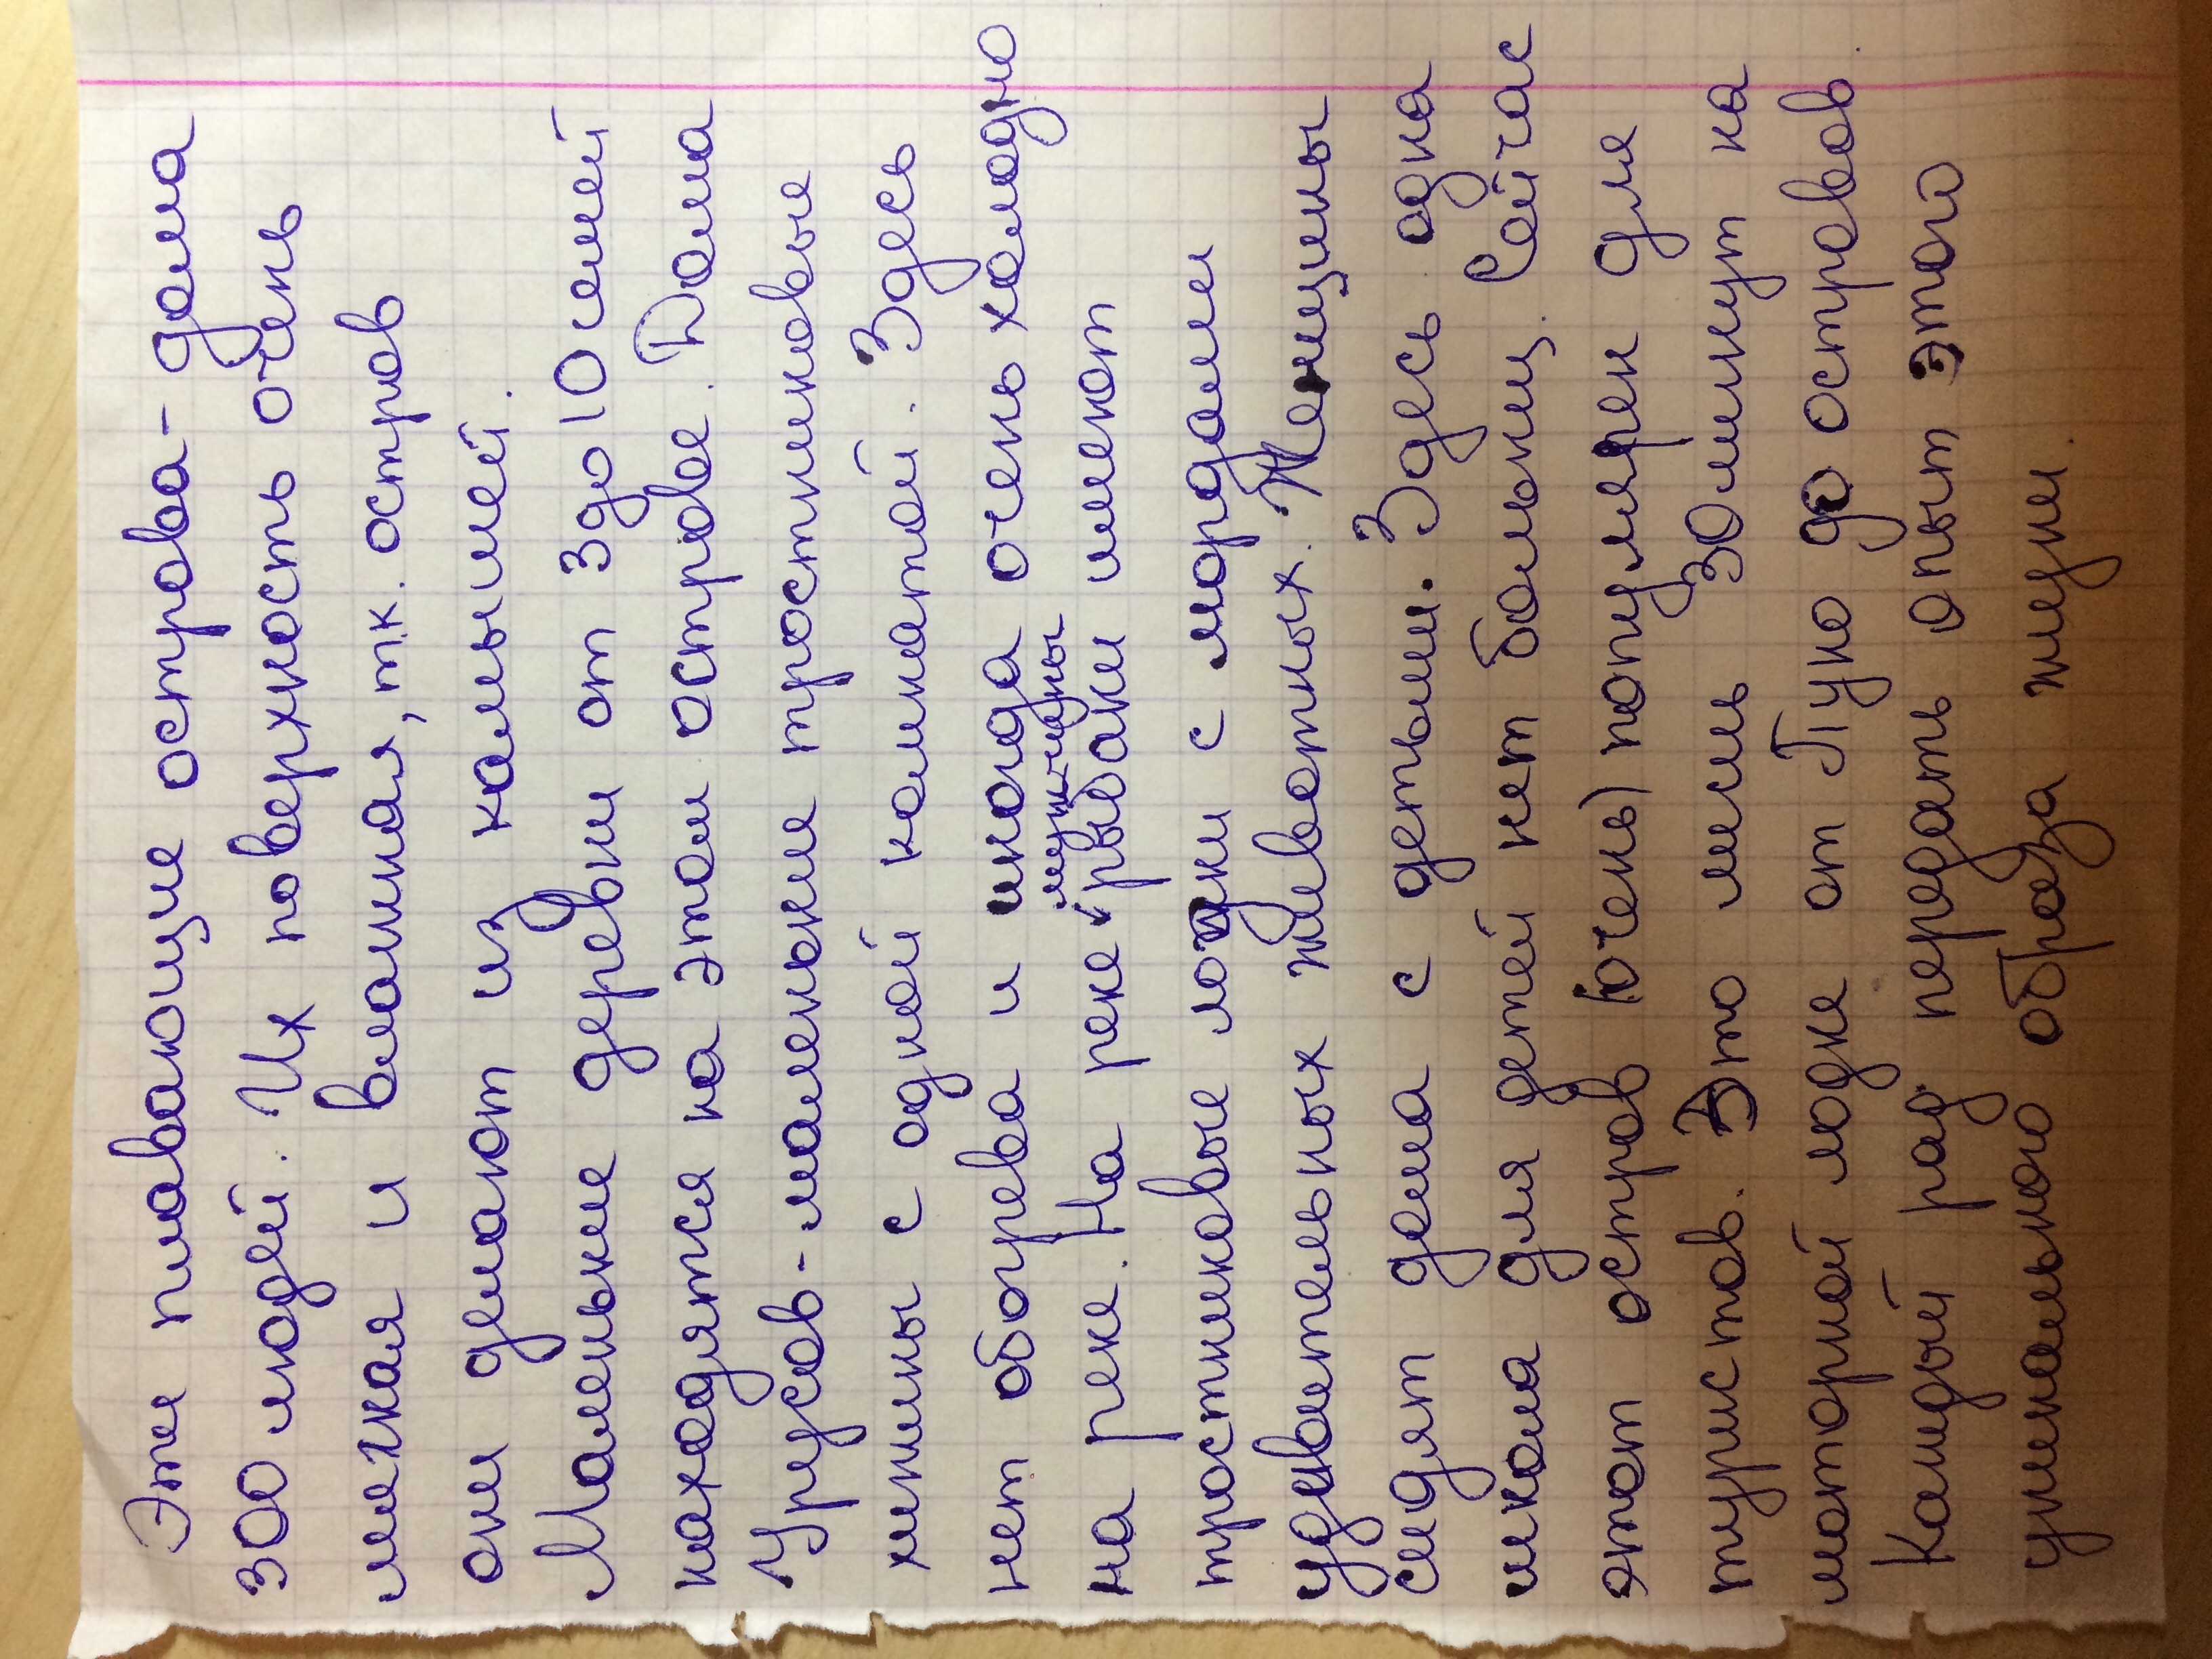 Эти плавающие острова - дома
300 людей. Их поверхность очень
мягкая и влажная, т.к. остров
они делают из камышей.
Маленькие деревни от 3 до 10 семей
находятся на этом острове. Дома
Урусов - маленькие тростниковые
хижины с одной комнатой. Здесь
нет обогрева и иногда очень холодно
на реке. На реке мужчины рыбаки имеют
тростниковые лодки с мордами
удивительных животных. Женщины
сидят дома с детьми. Здесь одна
школа для детей нет больниц. Сейчас
этот остров (очень) популярен для
туристов. Это лишь 30 минут на
моторной лодке от Пуно до островов.
Каждый рад передать опыт этого
уникального образа жизни.